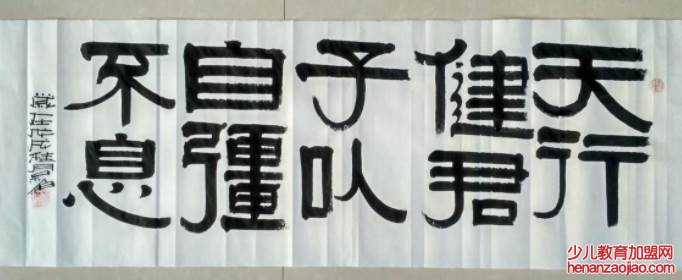 天行
健君
子以
自彊
不息
少儿教育加盟网
henanzaojiao.com